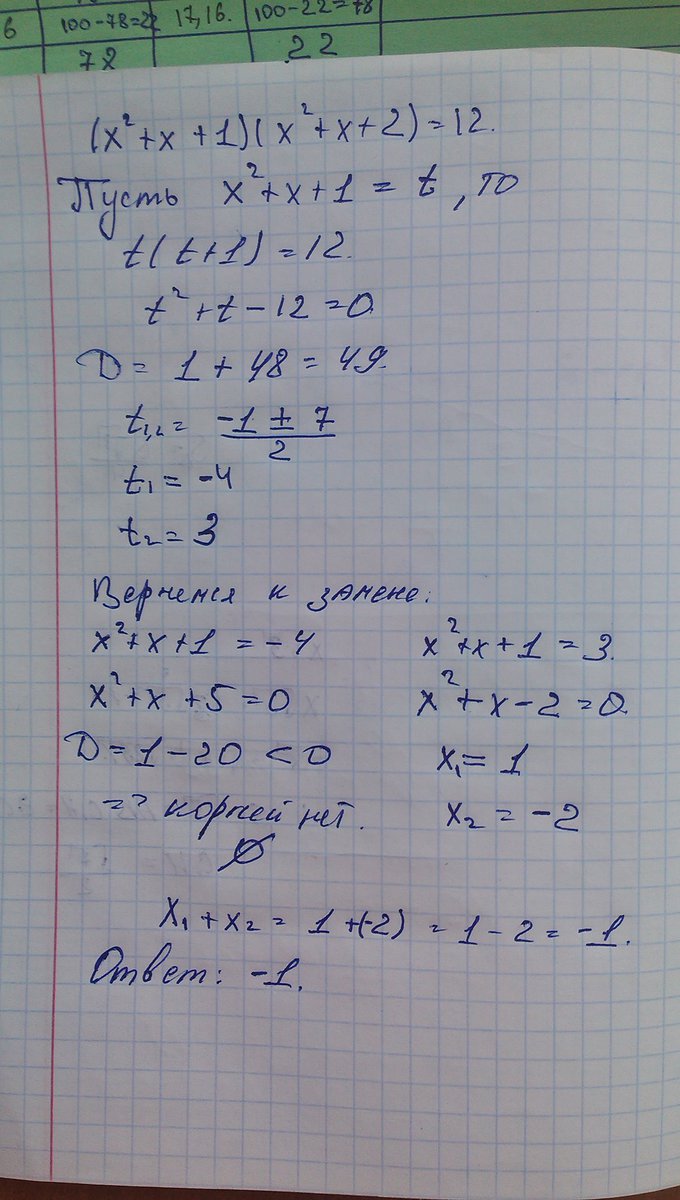 6 | 100-78=22 | 17,16. | 100-22=78
78 | 22
(x²+x+1)(x²+x+2)=12.
Пусть x²+x+1 = t, то
t(t+1)=12.
t²+t-12=0
D = 1+48=49.
t₁,₂= (-1 ± 7)/2
t₁=-4
t₂=3
Вернемся к замене:
x²+x+1 = -4    x²+x+1=3.
x²+x+5=0    x²+x-2=0.
D=1-20<0    x₁=1
=> корней нет.    x₂=-2
∅
x₁+x₂= 1+(-2) = 1-2= -1.
Ответ: -1.